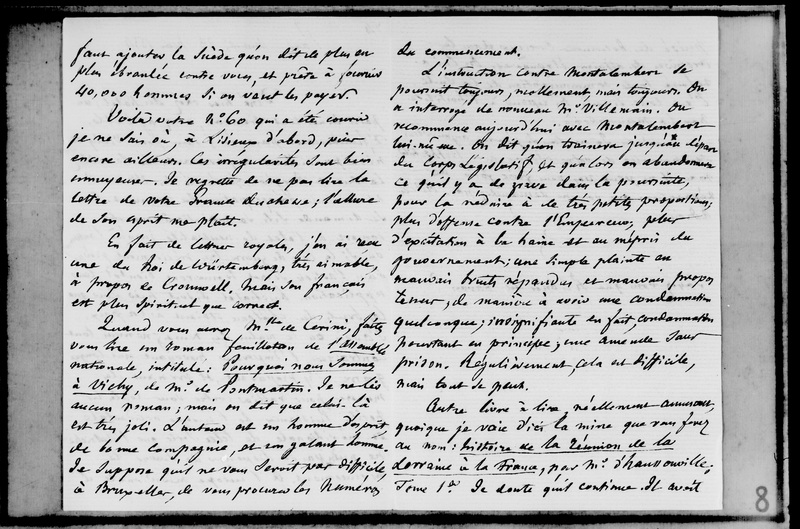 faut ajouter la Suède qu'on dit de plus en
plus ébranlée contre vous, et prête à fournir
40,000 hommes si on veut les payer.
Voilà votre No. 60 qui a été courir
je ne sais où, à Lisieux d'abord, puis
encore ailleurs. Ces irrégularités sont bien
ennuyeuses. Je regrette de ne pas lire la
lettre de votre Grande Duchesse; l'allure
de son esprit me plait.
En fait de lettres royales, j'en ai reçu
une du Roi de Würtemberg, très aimable,
à propos de Cromwell. Mais son français
est plus spirituel que correct.
Quand vous aurez Mlle de Cerini, faites
vous lire un roman feuilleton de l'assemblée
nationale, intitulé: Pourquoi nous sommes
à Vichy, de Mr. de Pontmartin. Je ne lis
aucun roman; mais on dit que celui-là
est très joli. L'auteur est un homme d'esprit,
de bonne compagnie, et un galant homme.
Je suppose qu'il ne vous serait pas difficile,
à Bruxelles, de vous procurer les numéros
du commencement.
L'instruction contre Montalembert se
poursuit toujours, mollement mais toujours. On
a interrogé de nouveau Mr. Villemain. On
recommence aujourd'hui avec Montalembert
lui-même. On dit qu'on trainera jusqu'au départ
du Corps Législatif, et qu'alors on abandonnera
ce qu'il y a de grave dans la poursuite,
pour la réduire à de très petites proportions;
plus d'offense contre l'Empereur, plus
d'excitation à la haine et au mépris du
gouvernement; une simple plainte en
mauvais bruits répandus et mauvais propos
tenus; de manière à avoir une condamnation
quelconque; insignifiante en fait, condamnation
pourtant en principe; une amende sans
prison. Régulièrement, cela est difficile,
mais tout se peut.
Autre livre à lire, réellement amusant,
quoique je voie d'ici la mine que vous ferez
au nom: histoire de la Réunion de la
Lorraine à la France, par Mr. d'haussonville.
Tome 1er. Je doute qu'il continue. Il avoit
8